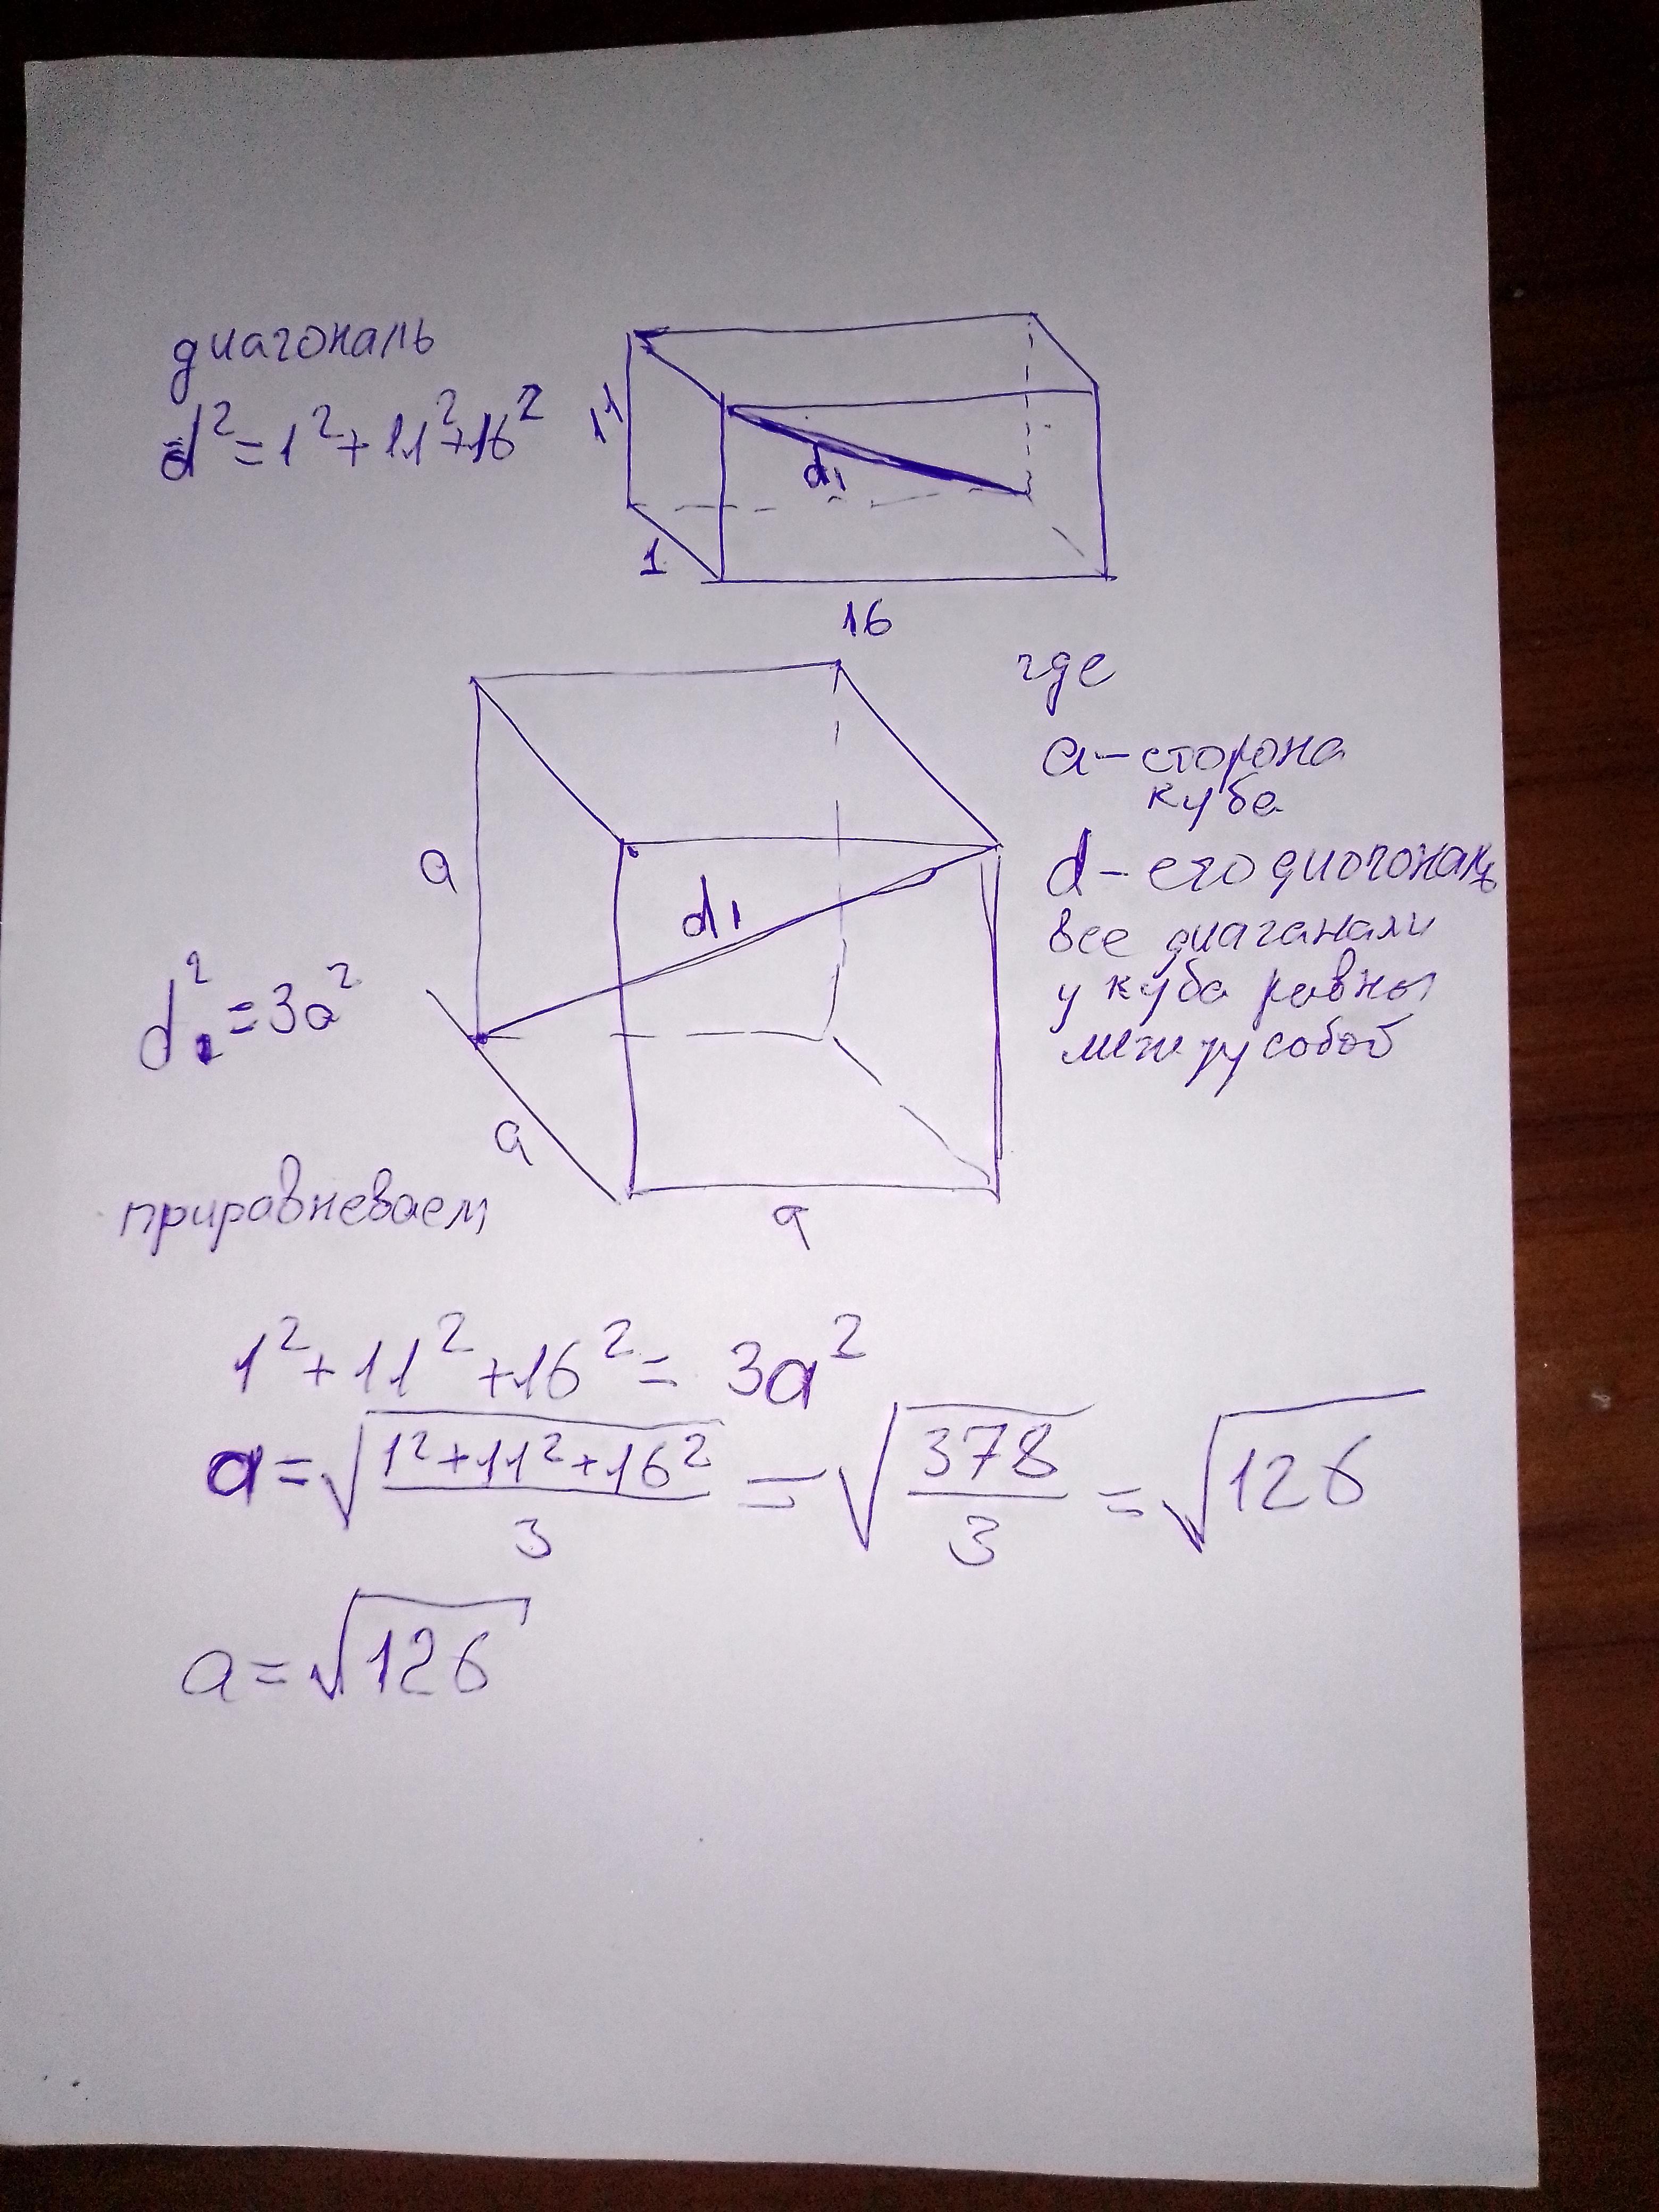 диагональ
d² = 1² + 11² + 16²
11
d₁
1
16
где
a – сторона
куба
d – его диогональ
все диаганали
у куба равны
между собой
a
d₁
d₁² = 3a²
a
a
приравневаем
1² + 11² + 16² = 3a²
a = √((1² + 11² + 16²)/3) = √(378/3) = √126
a = √126